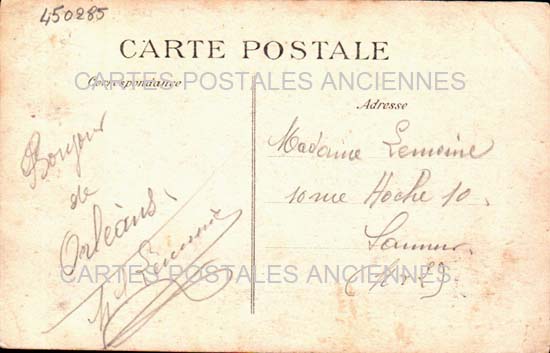 450285
CARTE POSTALE
CARTES POSTALES ANCIENNES
Correspondance
Adresse
Bonjour
de
Orléans
Madame Lemoine
10 rue Hoche 10
Saumur
(M & L)
CARTES POSTALES ANCIENNES